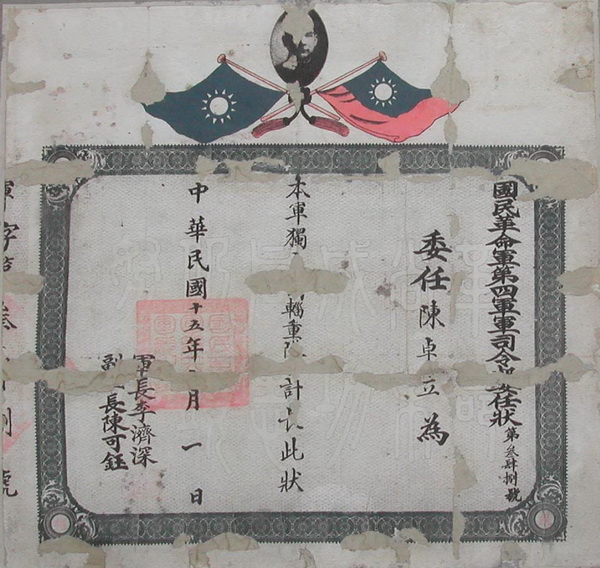 國民革命軍第四軍軍司令部委任狀
第叁肆捌號
委任陳卓立為
本軍獨
輜重隊
計長此狀
軍長李濟深
副長陳可鈺
中華民國十五年
月一日
軍字第叁
捌號